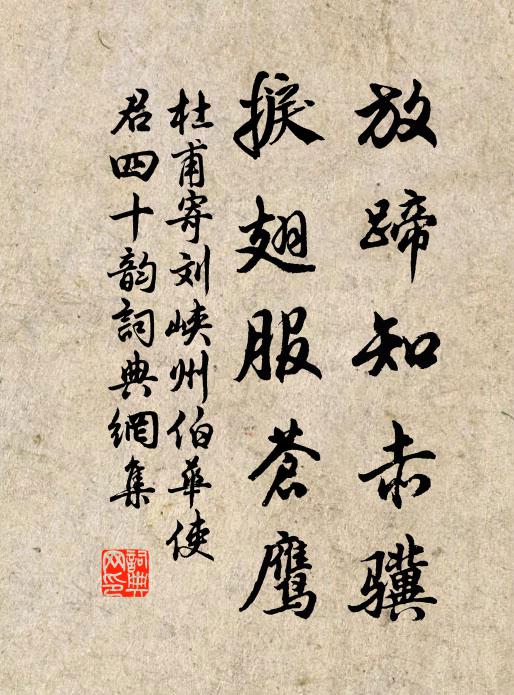 放蹄知赤骥
捩翅服苍鹰
杜甫寄刘峡州伯华使
君四十韵词典網集
詞典
网印